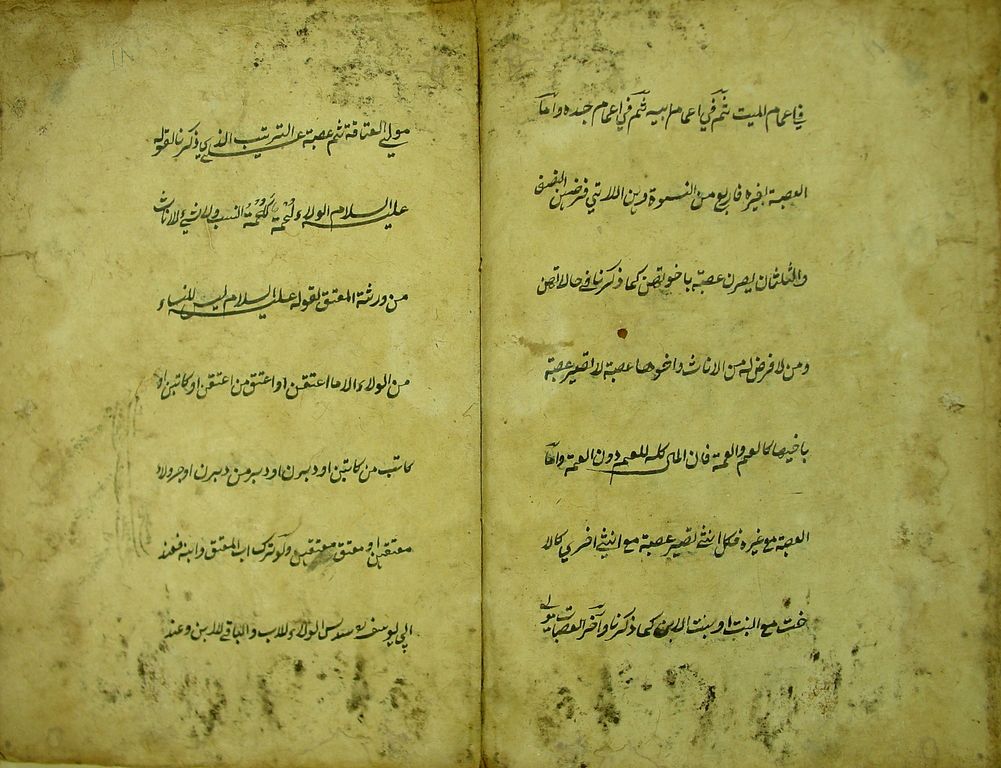 في اعمام الميت ثم في اعمام ابيه ثم في اعمام جده واما
العصبة بغيره فاربع من النسوة وهن اللاتي فرضهن النصف
والثلثان يصرن عصبة باخوتهن كما ذكرنا في حالاتهن
ومن لا فرض له من الاناث واخوها عصبة لا تصير عصبة
باخيها كالعم والعمة فان المال كله للعم دون العمة واما
العصبة مع غيره فكل انثى تصير عصبة مع انثى اخرى كالا
خت مع البنت او بنت الابن كما ذكرنا وآخر العصبات مولى
مولى العتاقة ثم عصبة على الترتيب الذي ذكرنا لقوله
عليه السلام الولاء لحمة كلحمة النسب ولا شيء لاناث
من ورثة المعتق لقوله عليه السلام ليس للنساء
من الولاء الا ما اعتقن او اعتق من اعتقن او كاتبن او
كاتب من كاتبن او دبرن او دبر من دبرن او جر ولاء
معتقهن او معتق معتقهن ولو ترك اب المعتق وابنه فعند
ابي يوسف سدس الولاء للاب والباقي للابن وعند